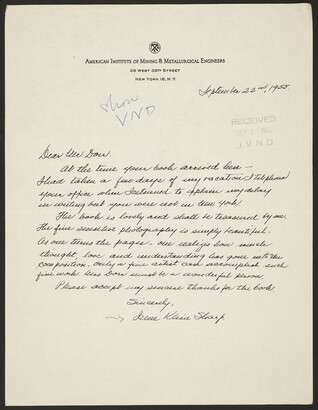 AMERICAN INSTITUTE OF MINING & METALLURGICAL ENGINEERS
29 WEST 39TH STREET
NEW YORK 18, N.Y.
September 22nd, 1955
Show
VND
RECEIVED
J.V.N.D.
Dear Mr. Dorr.
At the time your book arrived here —
I had taken a few days of my vacation I telephoned
your office when I returned to explain my delay
in writing but you were not in New York
The book is lovely and shall be treasured by me.
The fine sensitive photography is simply beautiful.
As one turns the pages - one realizes how much
thought, love and understanding has gone into the
composition. Only a fine artist can accomplish such
fine work. Mrs Dorr must be a wonderful person.
Please accept my sincere thanks for the book
Sincerely,
Irene Klein Sharp